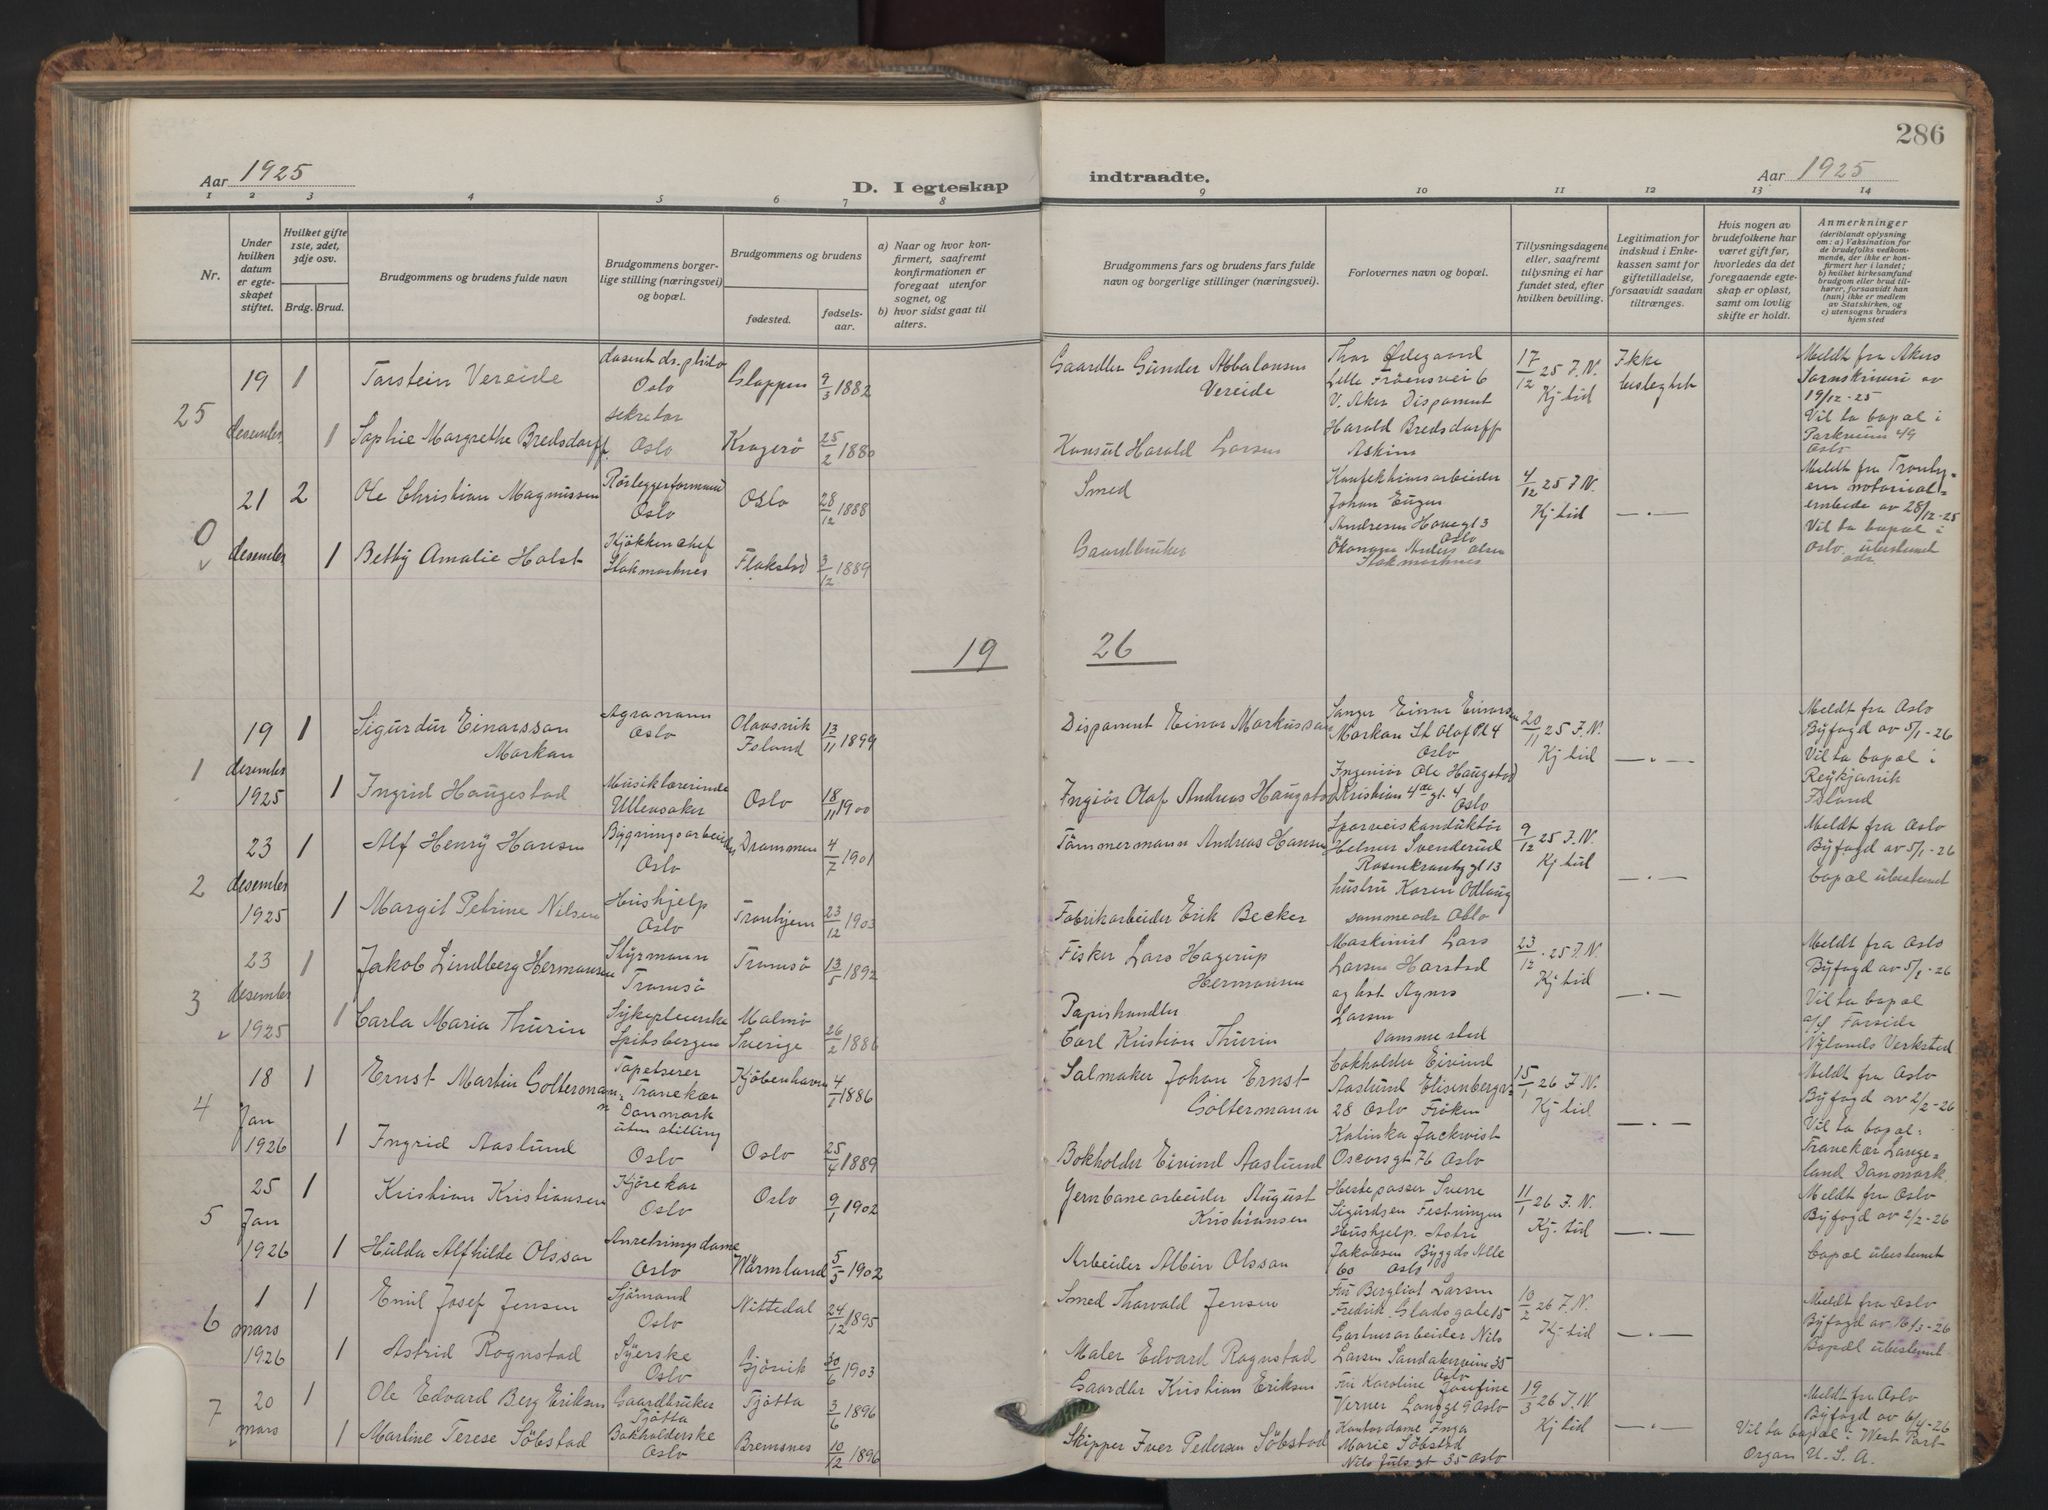 286
Aar 1925
D. I egteskap
indtraadte.
Aar 1925
1 2 3 4 5 6 7 8 9 10 11 12 13 14
Nr.
Under hvilken datum er egteskapet stiftet.
Hvilket gifte 1ste, 2det, 3dje osv.
Brdg. Brud.
Brudgommens og brudens fulde navn
Brudgommens borgerlige stilling (næringsvei) og bopæl.
Brudgommens og brudens
fødested.
fødselsaar.
a) Naar og hvor konfirmert, saafremt konfirmationen er foregaat utenfor sognet, og
b) hvor sidst gaat til alters.
Brudgommens fars og brudens fars fulde navn og borgerlige stillinger (næringsvei).
Forlovernes navn og bopæl.
Tillysningsdagene eller, saafremt tillysning ei har fundet sted, efter hvilken bevilling.
Legitimation for indskud i Enkekassen samt for giftetilladelse, forsaavidt saadan tiltrænges.
Hvis nogen av brudefolkene har været gift før, hvorledes da det foregaaende egteskap er opløst, samt om lovlig skifte er holdt.
Anmerkninger
(deriblandt oplysning om: a) Vaksination for de brudefolks vedkommende, der ikke er konfirmert her i landet; b) hvilket kirkesamfund brudgom eller brud tilhører, forsaavidt han (hun) ikke er medlem av Statskirken, og c) utensogns bruders hjemsted
25
19 desember
1 Torstein Vereide
Oslo
Gloppen 9/3 1882
Gaardbr Gunder Abbalonsen Vereide
Lille Frøensvei 6
V. Aker Disponent
Harald Bredsdorff
Askim
17/12 25 J.N.
Kj tid
Ikke beslegtet
Meldt fra Akers Sorenskriveri av 19/12-25
Vil ta bopæl i Parkveien 49 Oslo
1 Sophie Margrethe Bredsdorff
sekretær Oslo
Kragerø 25/2 1880
Konsul Harald Larsen
0
21 desember
2 Ole Christian Magnussen
Rörleggerformand Oslo
Oslo 28/12 1888
Smed
Konfektionsarbeider Johan Eugen Andresen
Oslo
4/12 25 J.N.
Kj tid
— . —
notorialembede av 28/12-25
Vil ta bopæl i Oslo, ubestemt adr
1 Betty Amalie Holst
Kjøkkenchef Stokmarknes
Flakstad 3/12 1889
Gaardbruker
Stokmarknes
19 26
1
19 desember 1925
1 Sigurdur Einarsson Markan
Agronom Oslo
Olavsvik Island 13/11 1899
Disponent Einar Markusson
Sanger Einar Einarsson Markan St Olaf Pl 4 Oslo
20/11 25 J.N.
Kj tid
— . —
Meldt fra Oslo Byfogd av 5/1-26
Vil ta bopæl i Reykjavik Island
1 Ingrid Haugestad
Musiklærerinde Ullensaker
Oslo 18/11 1900
Ingiør Olaf Andreas Haugstad
Ingeniör Ole Haugstad Kristian 4de gt. 4 Oslo
2
23 desember 1925
1 Alf Henry Hansen
Bygningsarbeider Oslo
Drammen 4/7 1901
Tömmermann Andreas Hansen
Sporveiskonduktör Helmer Svenderud Rosenkrantzgt 13
hustru Karen Odlaug samme adr Oslo
9/12 25 J.N.
Kj tid
— . —
Meldt fra Oslo Byfogd av 5/1-26
bopæl ubestemt
1 Margit Petrine Nilsen
Hushjelp Oslo
Tronhjem 23/12 1903
Fabrikarbeider Erik Becker
3
23 desember 1925
1 Jakob Lindberg Hermansen
Styrmann Tromsö
Tromsö 13/5 1892
Fisker Lars Hagerup Hermansen
Maskinist Lars Larsen Harstad
og hst Agnes Larsen samme sted
23/12 - 25 J.N.
Kj tid
— . —
Meldt fra Oslo Byfogd av 5/1-26
Vil ta bopæl a/s Farside Nylands Verksted
1 Carla Maria Thurin
Sykepleierske Spitsbergen
Malmö Sverige 26/2 1886
Papirhandler Carl Kristian Thurin
4
18 Jan 1926
1 Ernst Martin Goltermann
Tapetserer Tranekær Danmark
Kjøbenhavn 4/1 1886
Salmaker Johan Ernst Goltermann
Bokholder Eivind Aaslund Elisenbergv. 28 Oslo Frøken
Oscarsgt 76 Oslo
15/1 26 J.N.
Kj tid
— . —
Meldt fra Oslo Byfogd av 2/2-26
Vil ta bopæl: Tranekær Langeland Danmark.
1 Ingrid Aaslund
uten stilling Oslo
Oslo 25/4 1889
Bokholder Eivind Aaslund
5
25 Jan 1926
1 Kristian Kristiansen
Kjörekar Oslo
Oslo 9/1 1902
Jernbanearbeider August Kristiansen
Hestepasser Sverre Sigurdsen Festningen
Hushjelp Astri Jakobsen Bygdø Alle 60 Oslo
11/1 26 J.N.
Kj. tid
— . —
Meldt fra Oslo Byfogd av 2/2-26
bopæl ubestemt
1 Hulda Alfhilde Olsson
Anretningsdame Oslo
Wärmland 5/5 1902
Arbeider Albin Olsson
6
1 mars 1926
1 Emil Josef Jensen
Sjömand Oslo
Nittedal 24/12 1895
Smed Thorvald Jensen
Fru Bergliot Larsen Fredrik Gladsgate 15
Gartnerarbeider Nils Larsen Sandakerveien 35 Oslo
10/2 26 J.N.
Kj tid
— . —
Meldt fra Oslo Byfogd av 16/3-26
Bopæl ubestemt
1 Astrid Rognstad
Syerske Oslo
Gjövik 30/6 1903
Maler Edvard Rognstad
7
20 mars
1 Ole Edvard Berg Eriksen
Gaardbruker Tjøtta
Tjøtta 3/6 1896
Gaardbr Kristian Eriksen
Fru Karoline Josefine
Oslo
Kontordame Inga Marie Söbstad
Nils Juls gt 35 Oslo
19/3 26 J.N.
Kj tid
— . —
Meldt fra Oslo Byfogd av 6/4-26
Vil ta bopæl i West Port Organ U.S.A.
1 Martine Terese Söbstad
Bokholderske Oslo
Bremsnes 10/12 1896
Skipper Iver Pedersen Söbstad